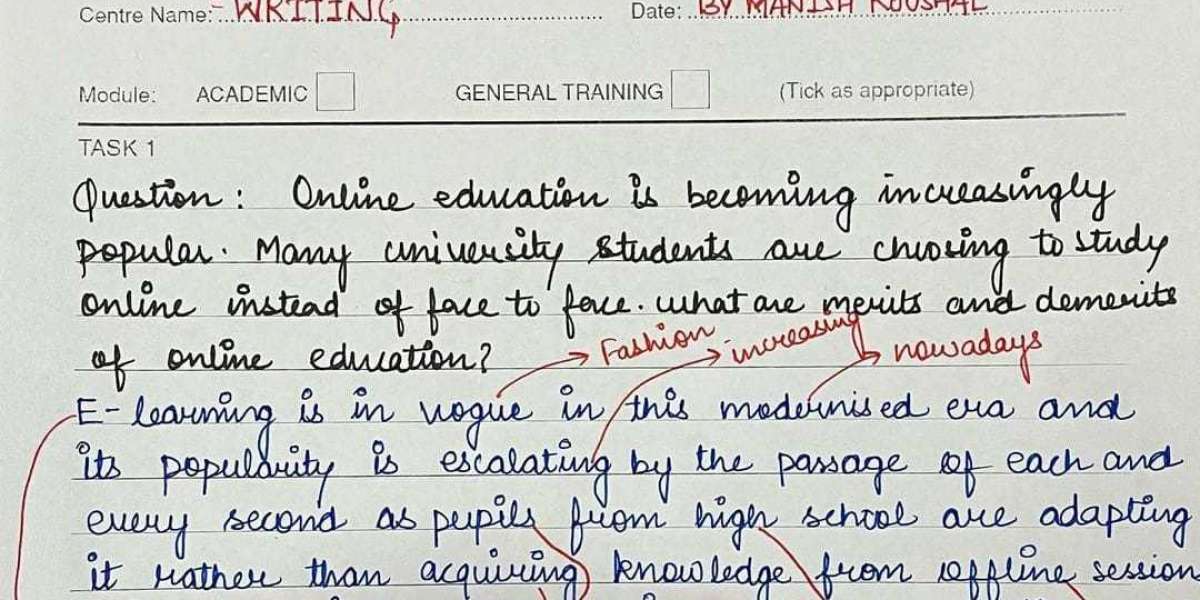 Centre Name: WRITING Date: BY MANISH KOUSHAL
Module: ACADEMIC GENERAL TRAINING (Tick as appropriate)
TASK 1
Question: Online education is becoming increasingly
popular. Many university students are choosing to study
online instead of face to face. what are merits and demerits
of online education?
Fashion increasing nowadays
E-learning is in vogue in this modernised era and
its popularity is escalating by the passage of each and
every second as pupils from high school are adapting
it rather than acquiring knowledge from offline session